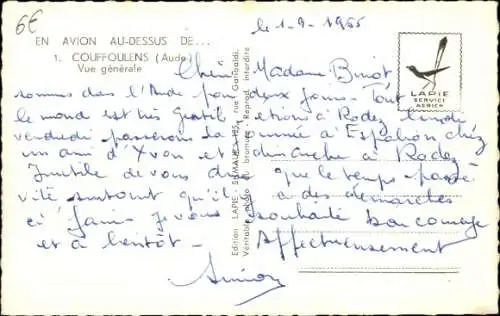 6€
le 1-9-1965
EN AVION AU-DESSUS DE...
1. COUFFOULENS (Aude)
Vue générale
LAPIE
SERVICE
AÉRIEN
Edition LAPIE - St-MAUR - 152, rue Garibaldi.
Véritable photo au bromure - Reprod. interdite
Chère Madame Binot
sommes dans l'Aude pour deux jours - Tout
le monde est très gentil - étions à Rodez lundi
vendredi passerons la journée à Espalion chez
un ami d'Yvon et dimanche à Rodez
Inutile de vous dire que le temps passe
vite surtout qu'il y a des démarches
et à faire je vous souhaite bon courage
et à bientôt - Affectueusement
Simon